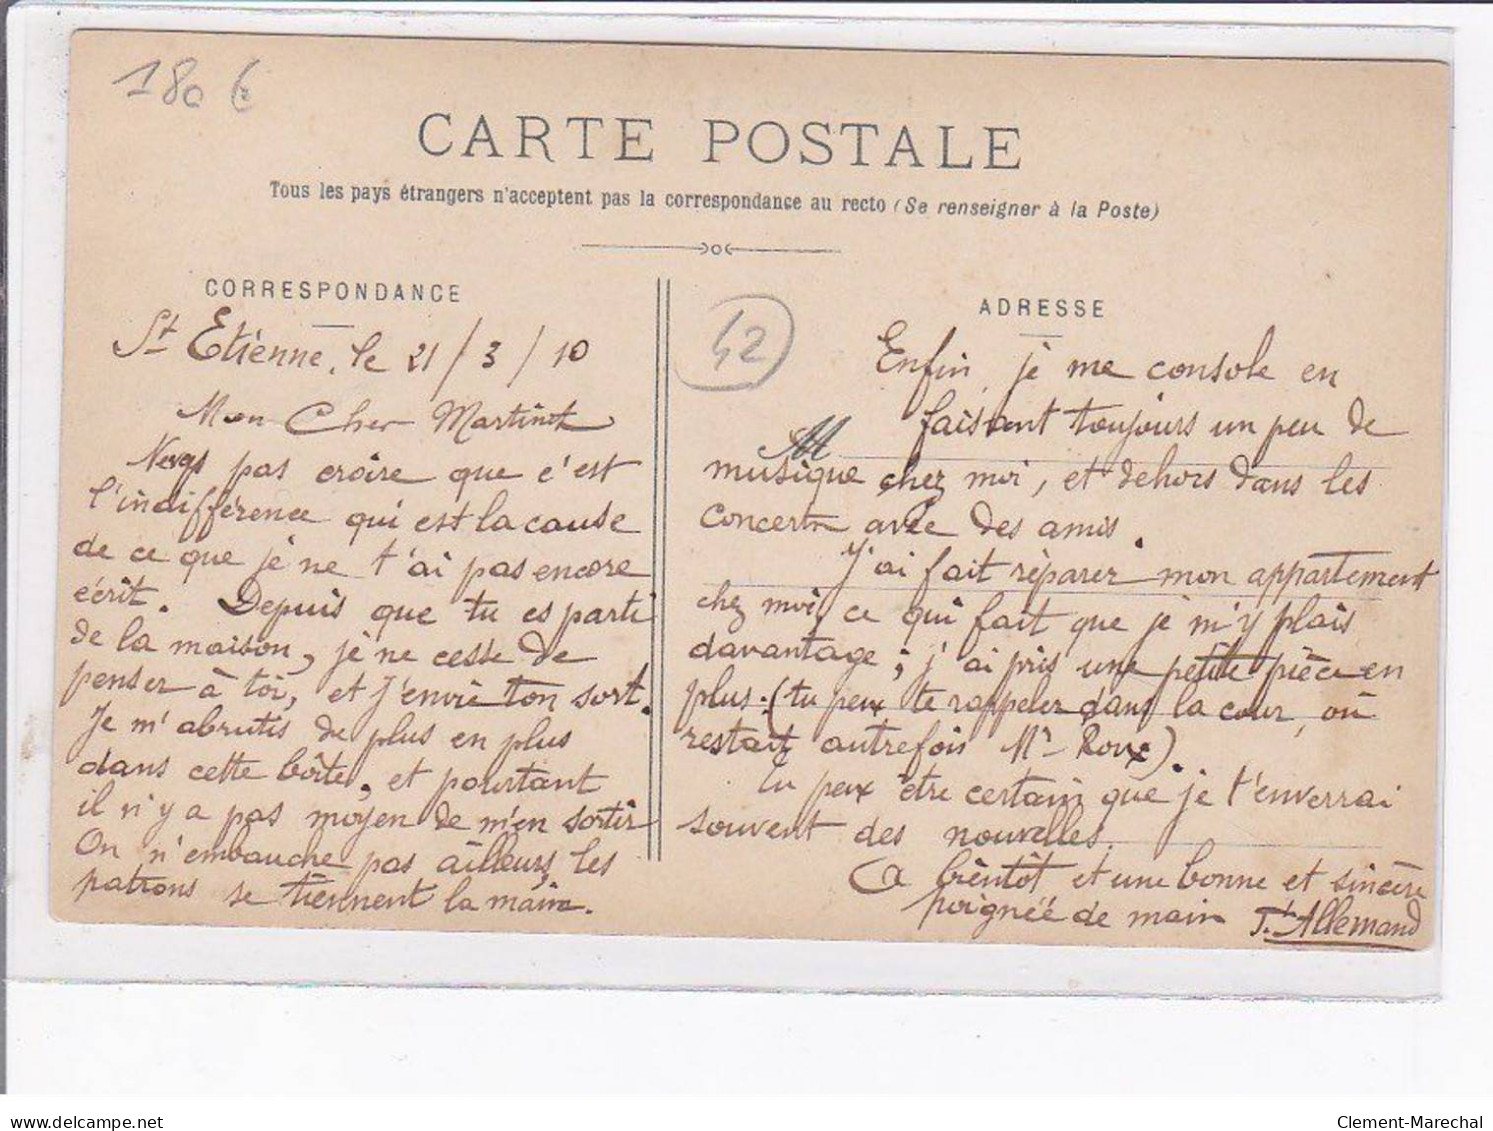 180 €
CARTE POSTALE
Tous les pays étrangers n'acceptent pas la correspondance au recto (Se renseigner à la Poste)
CORRESPONDANCE
St Etienne, le 21/3/10
Mon Cher Martinet
pas croire que c'est
l'indifférence qui est la cause
de ce que je ne t'ai pas encore
écrit. Depuis que tu es parti
de la maison, je ne cesse de
penser à toi, et j'envie ton sort.
Je m'abrutis de plus en plus
dans cette boîte, et pourtant
il n'y a pas moyen de m'en sortir
On n'embauche pas ailleurs, les
patrons se tiennent la main.
42
ADRESSE
Enfin, je me console en
faisant toujours un peu de
musique chez moi, et dehors dans les
concerts avec des amis.
J'ai fait réparer mon appartement
chez moi, ce qui fait que je m'y plais
davantage; j'ai pris une petite pièce en
plus. (tu peux te rappeler dans la cour, où
restait autrefois Mr Roux).
Tu peux être certain que je t'enverrai
souvent des nouvelles.
A bientôt et une bonne et sincère
poignéé de main J. Allemand
delcampe.net
Clement-Marechal